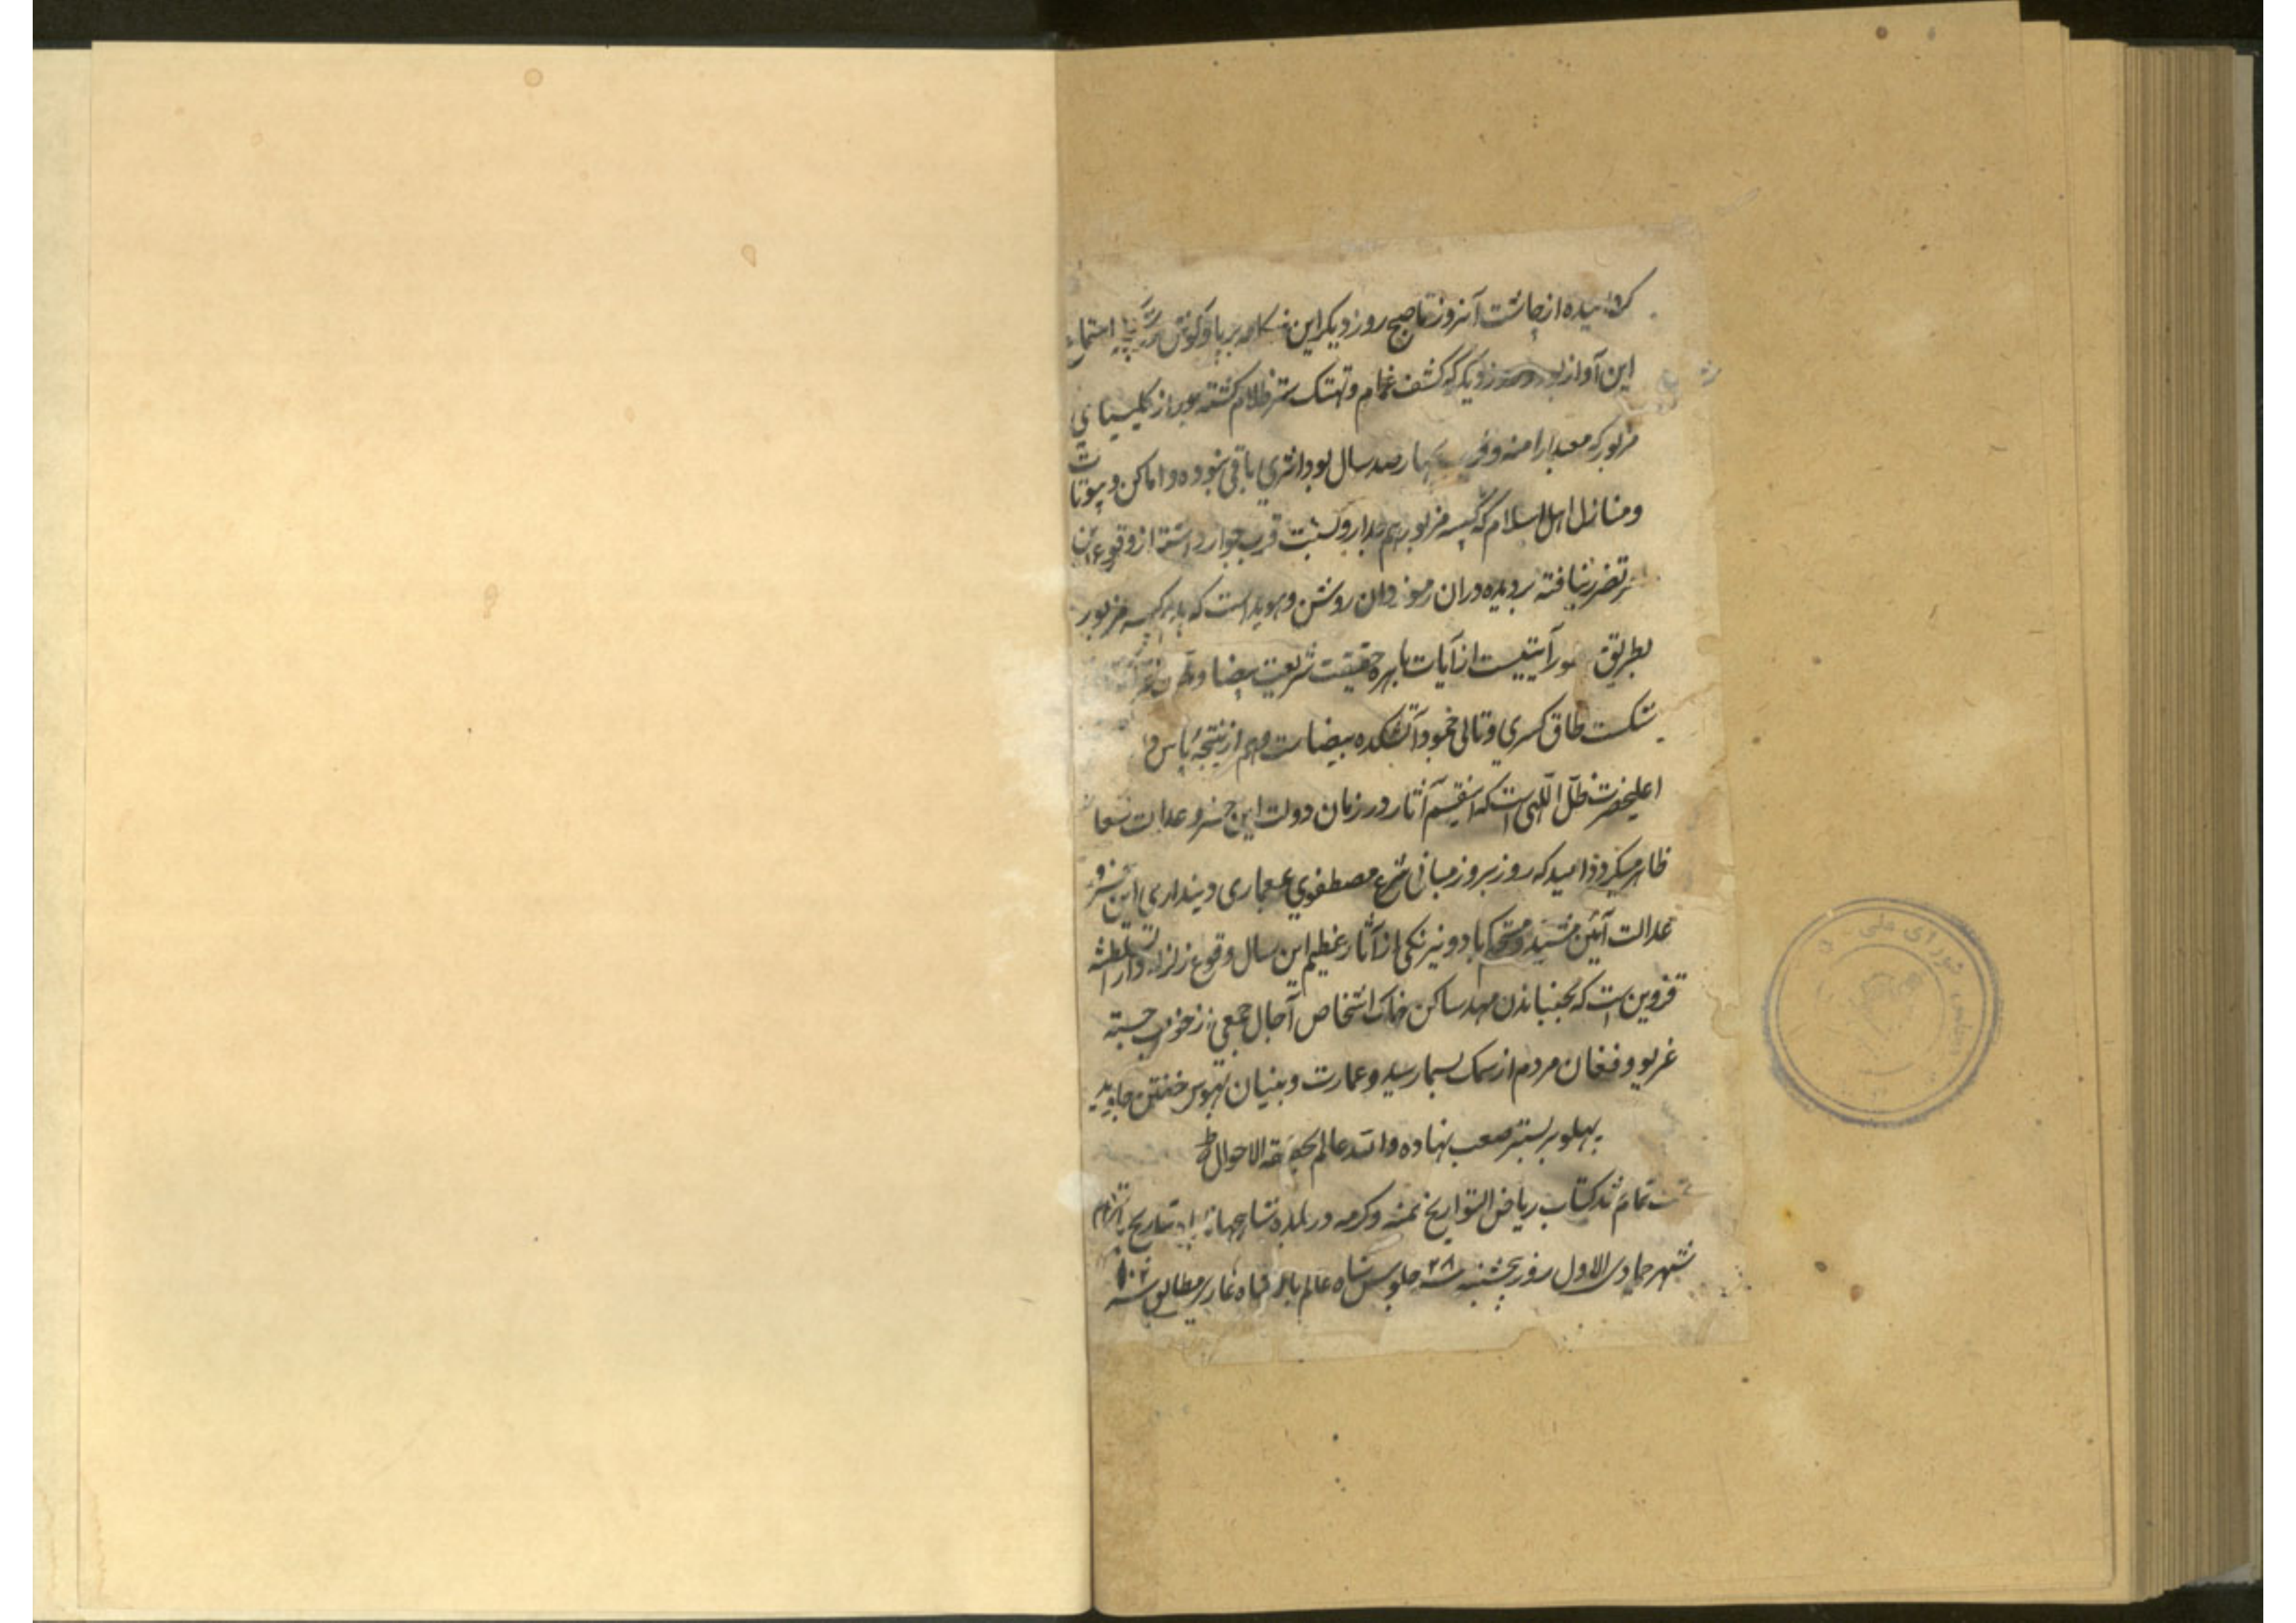 از چاشت آنروز تا صبح روز دیکر این برپا و کوش اجتماع
این آواز بود روز دیکر که کشف غمام و تهتک ستر ظلام کشته بود از کلیسیای
مزبور که معبد ارامنه و قریب بچهارصد سال بود اثری باقی نبوده و اماکن و بیوتات
و منازل اهل اسلام که کنیسه مزبور هم جدار و نسبت قرب جوار داشته از وقوع این
تضرر نیافته بر دیده وران رموز دان روشن و هویداست که کنیسه مزبور
بطریق آیتیست از آیات باهره حقیقت شریعت بیضا و
شکست طاق کسری و تالی خمود آتشکده بیضا است و هم از نتیجهٔ پاس
اعلیحضرت ظل اللهی است که اینقسم آثار در زمان دولت این خسرو عدالت شعار
ظاهر میکردد امید که روز بروز مبانی شرع مصطفوی بمعماری دینداری این خسرو
عدالت آئین مشید و مستحکم باد و نیرنکی از آثار عظیم این سال وقوع زلزله دار السلطنه
قزوین است که بجنباندن مهد ساکن خاک اشخاص آجال جمعی از خواب جسته
غریو و فغان مردم از سمک بسما رسید و عمارت و بنیان بهوس خفتن جاوید
پهلو بر بستر صعب نهاده والله عالم بحقیقة الاحوال
تمت تمام شد کتاب ریاض التواریخ بمنه و کرمه در بلده شاهجهان اباد بتاریخ
شهر جمادی الاول روز پنجشنبه سنه ۲۸ جلوس شاه عالم بادشاه غازی مطابق سنه
شورای ملی